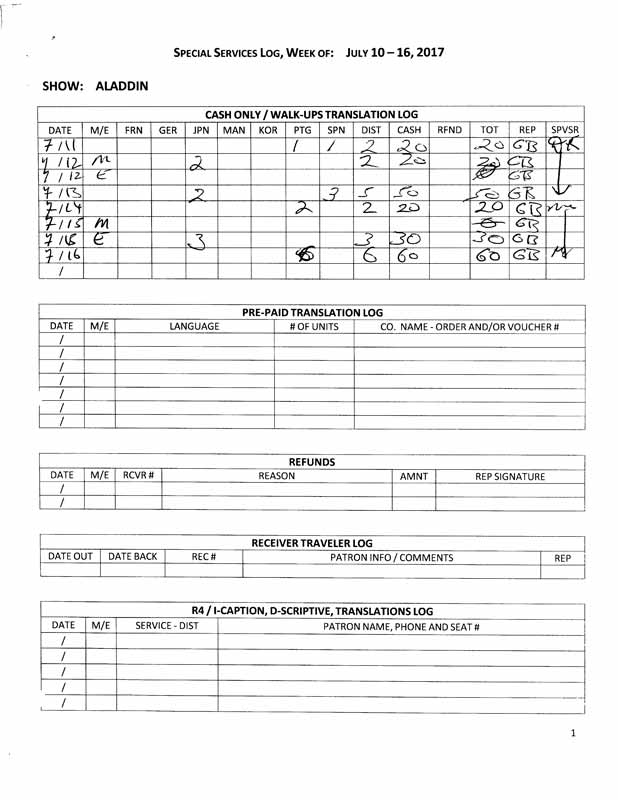 SPECIAL SERVICES LOG, WEEK OF: JULY 10 – 16, 2017
SHOW: ALADDIN
CASH ONLY / WALK-UPS TRANSLATION LOG
DATE M/E FRN GER JPN MAN KOR PTG SPN DIST CASH RFND TOT REP SPVSR
7/11 1 1 2 20 20 GB
7/12 M 2 2 20 20 GB
7/12 E GB
7/13 2 3 5 50 50 GB
7/14 2 2 20 20 GB
7/15 M GB
7/15 E 3 3 30 30 GB
7/16 6 6 60 60 GB
/
PRE-PAID TRANSLATION LOG
DATE M/E LANGUAGE # OF UNITS CO. NAME - ORDER AND/OR VOUCHER #
/
/
/
/
/
/
/
REFUNDS
DATE M/E RCVR # REASON AMNT REP SIGNATURE
/
/
RECEIVER TRAVELER LOG
DATE OUT DATE BACK REC # PATRON INFO / COMMENTS REP
R4 / I-CAPTION, D-SCRIPTIVE, TRANSLATIONS LOG
DATE M/E SERVICE - DIST PATRON NAME, PHONE AND SEAT #
/
/
/
/
/
1